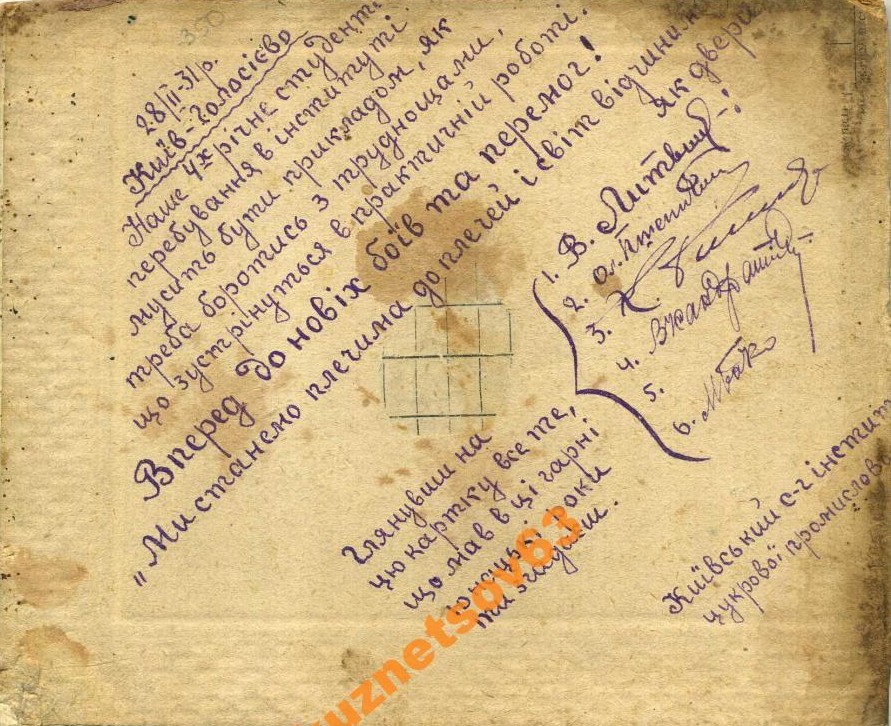 350
28/II-31/р.
Київ-Голосієво
Наше 4х річне студентс
перебування в інституті
мусить бути прикладом, як
треба боротись з труднощами,
що зустрінуться в практичній роботі.
Вперед до новіх боїв та перемог!
"Ми станемо плечима до плечей і світ відчинимо
як двері
1. В. Литвин
2. Ол.
3.
4.
5.
6.
Глянувши на
цю картку все те,
що мав в ці гарні
юнацькі роки
ти згадаєш.
Київський с-г інститут
цукрової промислово
kuznetsov63